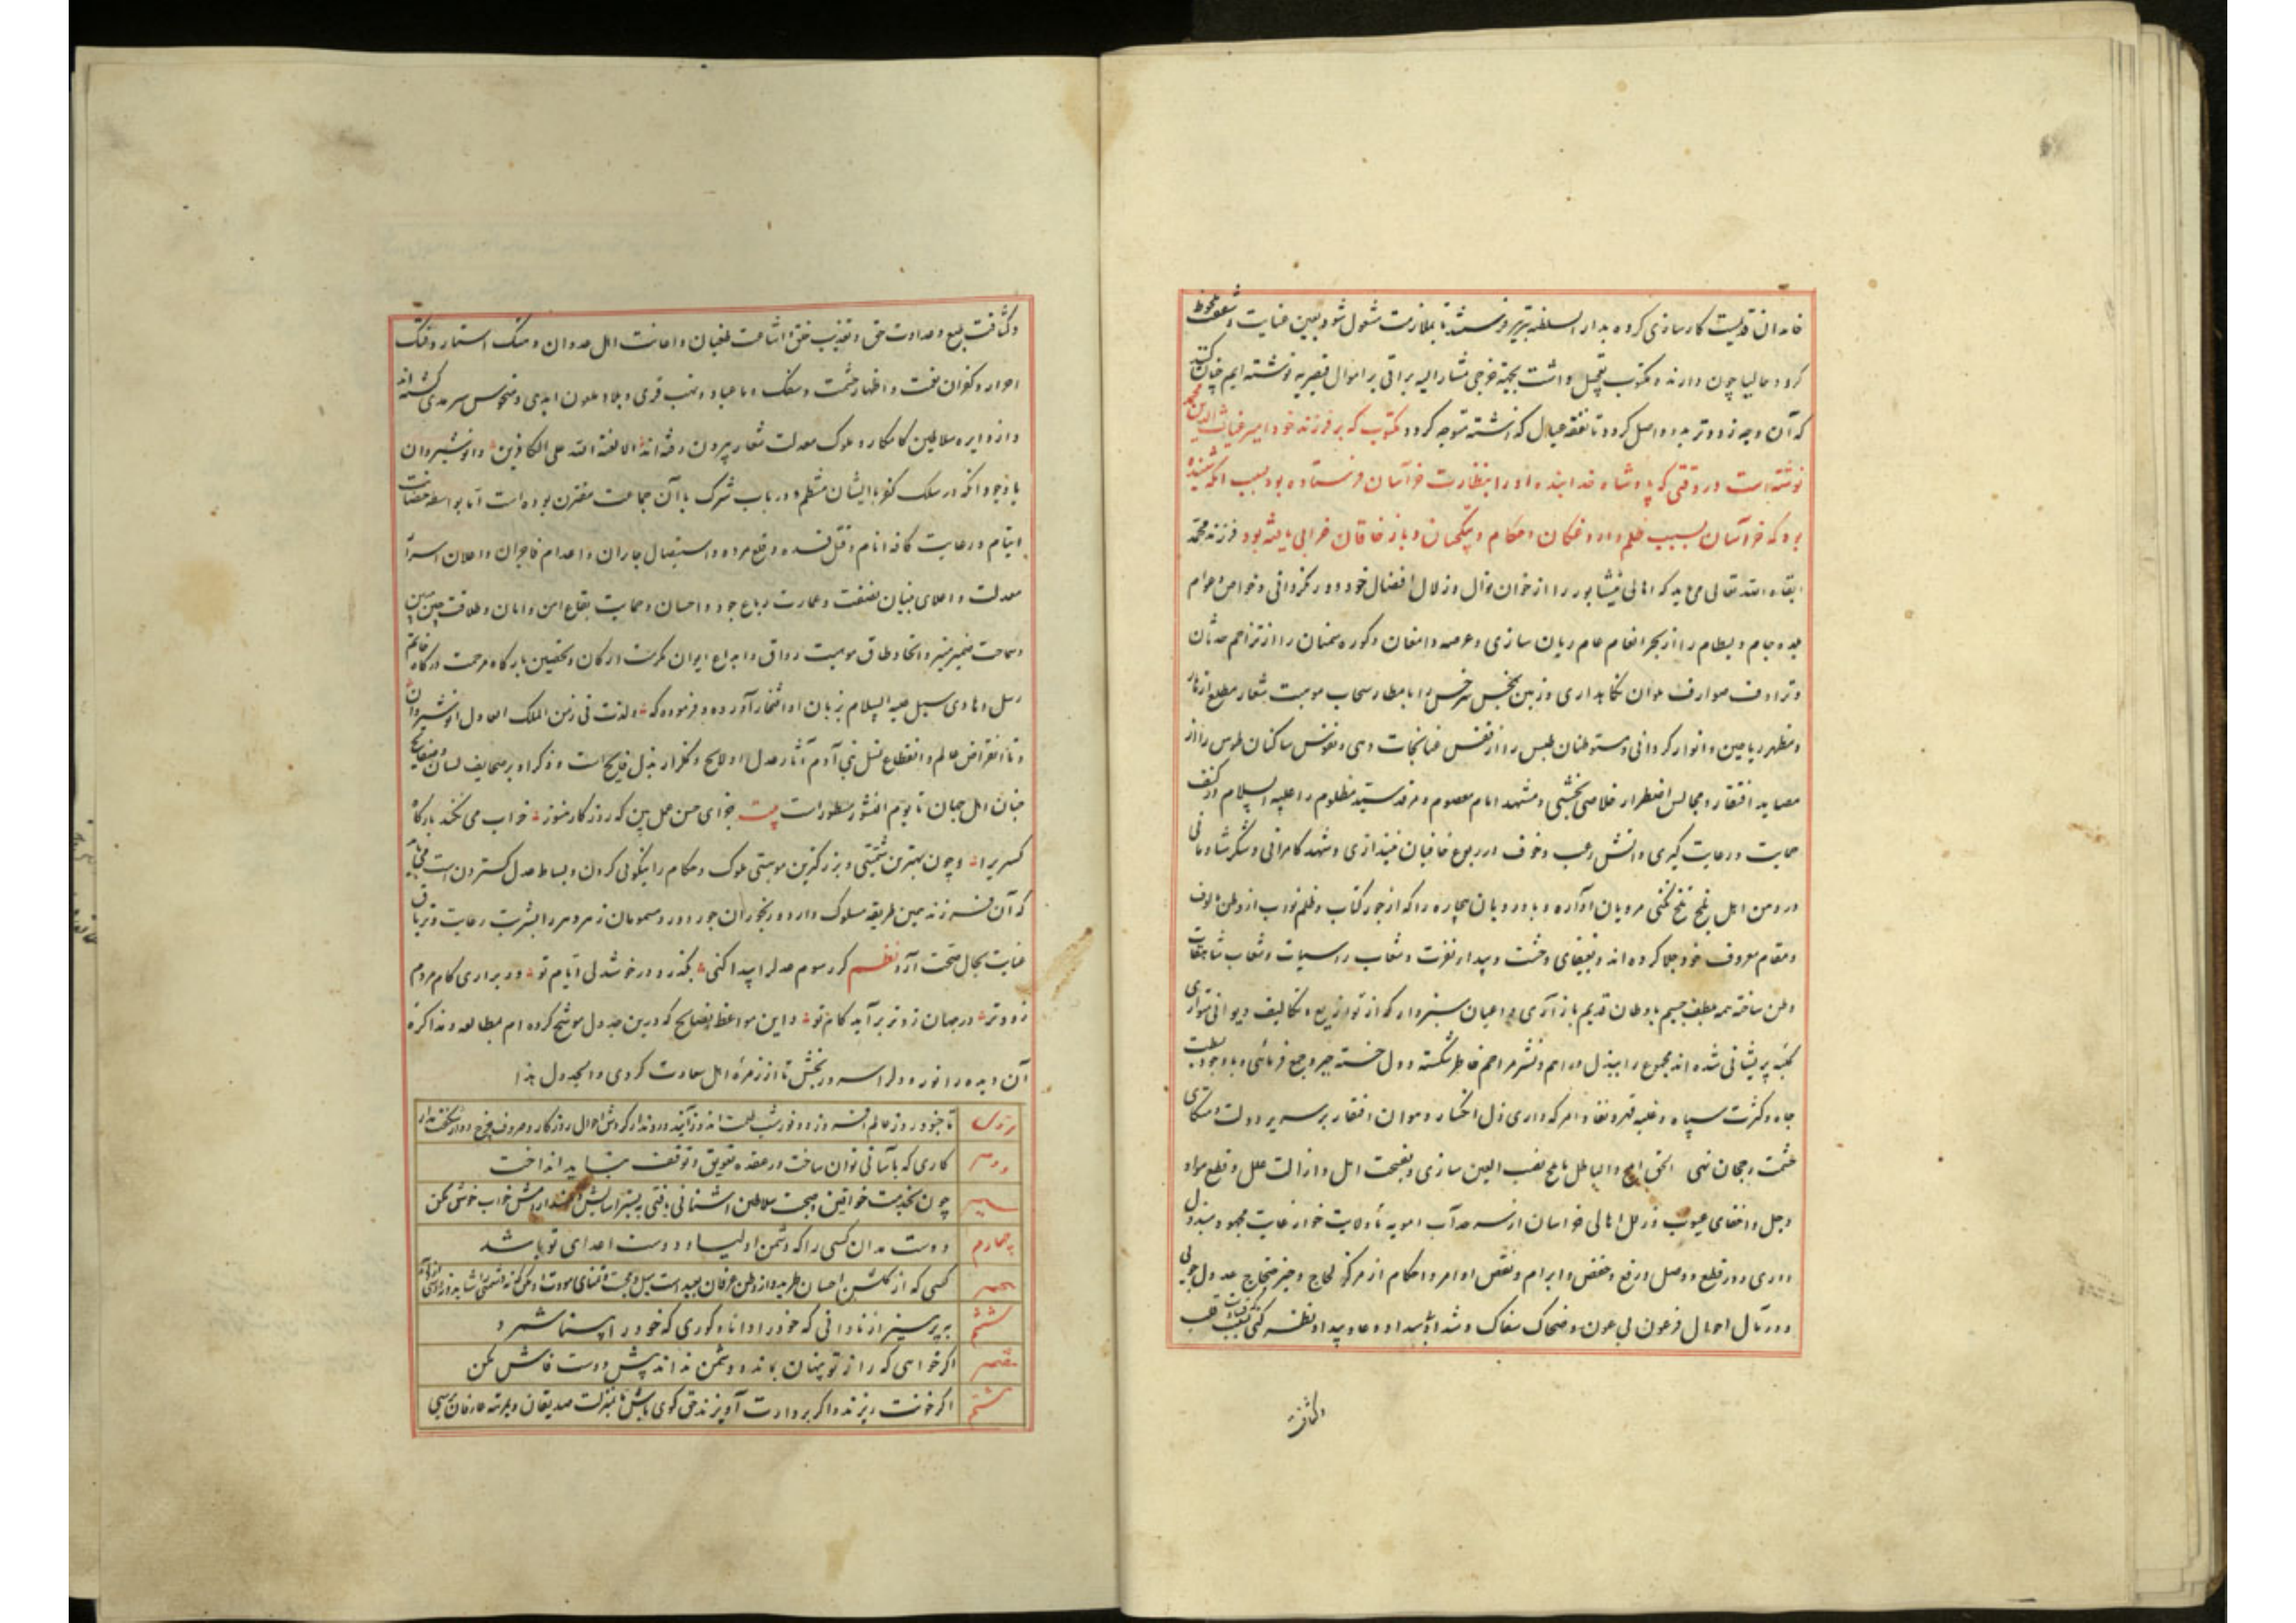 خاندان قدیست کارسازی کرده بدار السلطنه تبریز فرستند تا بملازمت مشغول شود و بعین عنایت و شفقت ملحوظ
کردد و حالیا چون دارنده مکتوب تعجیل داشت بجهة خرجی مشارالیه براتی بر اموال قیصریه نوشته ایم چنان کند
که آن وجه زودتر بدو واصل کردد تا نفقه عیال که گذاشته متوجه کردد مکتوب که بر فرزند خود امیر غیاث الدین محمد
نوشته است در وقتی که پادشاه خدابنده او را بنظارت خراسان فرستاده بود بسبب آنکه شنیده
بود که خراسان بسبب ظلم داروغکان و حکام و بتکچیان و باز خاقان خرابی یافته بود فرزند محمد
ابقاه الله تعالی می باید که اهالی نیشابور را از خوان نوال و زلال افضال خود دور نکردانی و خواص و عوام
بلده جام و بسطام را از بحر انعام عام ریان سازی و عرصه دامغان و کوره سمنان را از تزاحم حدثان
و ترادف صوارف ملوان نکاه داری و زمین سرخس را بامطار سحاب موهبت شعار مطلع ازهار
و مظهر ریاحین و انوار کردانی و متوطنان طبس را از قفس نجات دهی و نفوس ساکنان طوس را از
مصاید افتقار و مجالس اضطرار خلاصی بخشی و مشهد امام معصوم و مرقد سید مظلوم را علیه السلام در کنف
حمایت و رعایت کیری و آتش رعب و خوف در ربوع خافیان نیندازی و شهد کامرانی و شکر شادمانی
در دهن اهل بلخ تلخ نکنی مرویان آواره و باوردیان بیچاره را که از جور کتاب و ظلم نواب از وطن مألوف
و مقام معروف خود جلا کرده اند و بفیفای وحشت و بیدای نفرت و شعاب راسیات و شعاب شامخات
وطن ساخته همه بلطف جسیم باوطان قدیم باز آری و اعیان سبزوار که از توازیع و تکالیف دیوانی متواری
نکبه پریشانی شده اند مجموع را ببذل دراهم و نشر مراحم خاطر شکسته و دل خسته جبر و جمع فرمائی و با وجود بسطت
جاه و کثرت سپاه و غلبه قهر و نفاد امر که داری ذل انکسار و هوان افتقار بر سریر دولت و متکای
حشمت رجحان نهی الحق ابلج و الباطل لجلج نصب العین سازی و بفسحت امل و ازالت علل و قطع مواد
وجل و اخفای عیوب و زلل اهالی خراسان از سرحد آب امویه تا ولایت خوار عایت مجهود مبذول
داری و در قطع و وصل و رفع و خفض و ابرام و نقض اوامر و احکام از مرکز لجاج و حیز ضجاج عدول جوئی
و در مآل احوال فرعون بی عون و ضحاک سفاک و شداد بیداد و عاد پیداد نظر کنی که بسبب قساوت قلب
وکثافت
وکثافت طبع و عداوت حق و تعذیب خلق و اشاعت طغیان و اعانت اهل عدوان و هتک استار و فتک
احرار و کفران نعمت و اظهار حشمت و سفک دماء عباد و نهب قری و بلاد ملعون ابدی و منحوس سرمدی کشته اند
و از دایره سلاطین کامکار و ملوک معدلت شعار بیرون رفته اند الا لعنة الله علی الکافرین و انوشیروان
با وجود آنکه در سلک کفر با ایشان منتظم و در باب شرک با آن جماعت مقترن بوده است اما بواسطه حضانت
ایتام و رعایت کافه انام و قتل فسده و قلع مرده و استیصال جایران و اعدام فاجران و اعلان اسرار
معدلت و اعلای بنیان نصفت و عمارت رباع جود و احسان و حمایت بقاع امن و امان و طلاقت جبین مبین
و سماحت ضمیر منیر و اتخاذ طاق موهبت رواق و ابداع ایوان مکرمت ارکان و تحصین بارکاه مرحمت درکاه خاتم
رسل و هادی سبل علیه السلام بزبان او افتخار آورده و فرموده که ولدت فی زمن الملک العادل انوشیروان
و تا انقراض عالم و انقطاع نسل بنی آدم آثار عدل او لایح و کلزار بذل فایح است و ذکر او بر صحایف لسان و صفایح
جنان اهل جهان تا یوم النشور مسطور است بیت جزای حسن عمل بین که روزکار هنوز خراب می نکند بارکاه
کسری را و چون بهترین شیمتی و بزرکترین موهبتی ملوک و حکام را نیکوئی کردن و بساط عدل کستردن است می باید
که آن فرزند همین طریقه مسلوک دارد و رنجوران جور و درد و مسمومان زهر قهر را بشربت رعایت و تریاق
عنایت بحال صحت آرد نظم کر رسوم عدل را پیدا کنی بکذرد در خوشدلی ایام تو در براری کام مردم
زودتر در جهان زودتر برآید کام تو و این مواعظ و نصایح که درین جدول موشح کرده ام بمطالعه و مذاکره
آن دیده را نور و دل را سرور بخش تا از زمره اهل سعادت کردی و الجدول هذا
دوم کاری که بآسانی توان ساخت در عقده تعویق و توقف نباید انداخت
سیم چون بخدمت خواقین و صحبت سلاطین آشنائی یافتی بر بستر آسایش و مسند آرامش خواب خوش مکن
چهارم دوست مدان کسی را که دشمن اولیا و دوست اعدای تو باشد
پنجم کسی که از کلشن احسان طرید و از وطن عرفان بعید است
ششم بپرهیز از نادانی که خود را دانا و کوری که خود را بینا شمرد
هفتم اکر خواهی که راز تو پنهان بماند و دشمن نداند پیش دوست فاش مکن
هشتم اکر خونت ریزند و اکر بر دارت آویزند حق کوی باش تا بمنزلت صدیقان و بمرتبه عارفان برسی